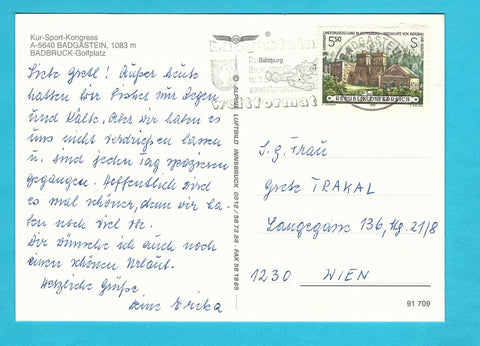 Kur-Sport-Kongress
A-5640 BADGASTEIN, 1083 m
BADBRUCK-Golfplatz
Liebe Gretl! Außer heute
hatten wir bisher nur Regen
und Kälte. Aber wir haben es
uns nicht verdrießen lassen
u. sind jeden Tag spazieren
gegangen. Hoffentlich wird
es mal schöner, denn wir ha-
ben noch viel vor.
Dir wünsche ich auch noch
einen schönen Urlaub.
Herzliche Grüße
Deine Erika
© ALPINE LUFTBILD INNSBRUCK
badgastein
Salzburg
weltformat
BADGASTEIN
5.50 S
REPUBLIK ÖSTERREICH
S. g. Frau
Grete TRAKAL
Langegasse 136, Hg. 21/8
1230 WIEN
91 709